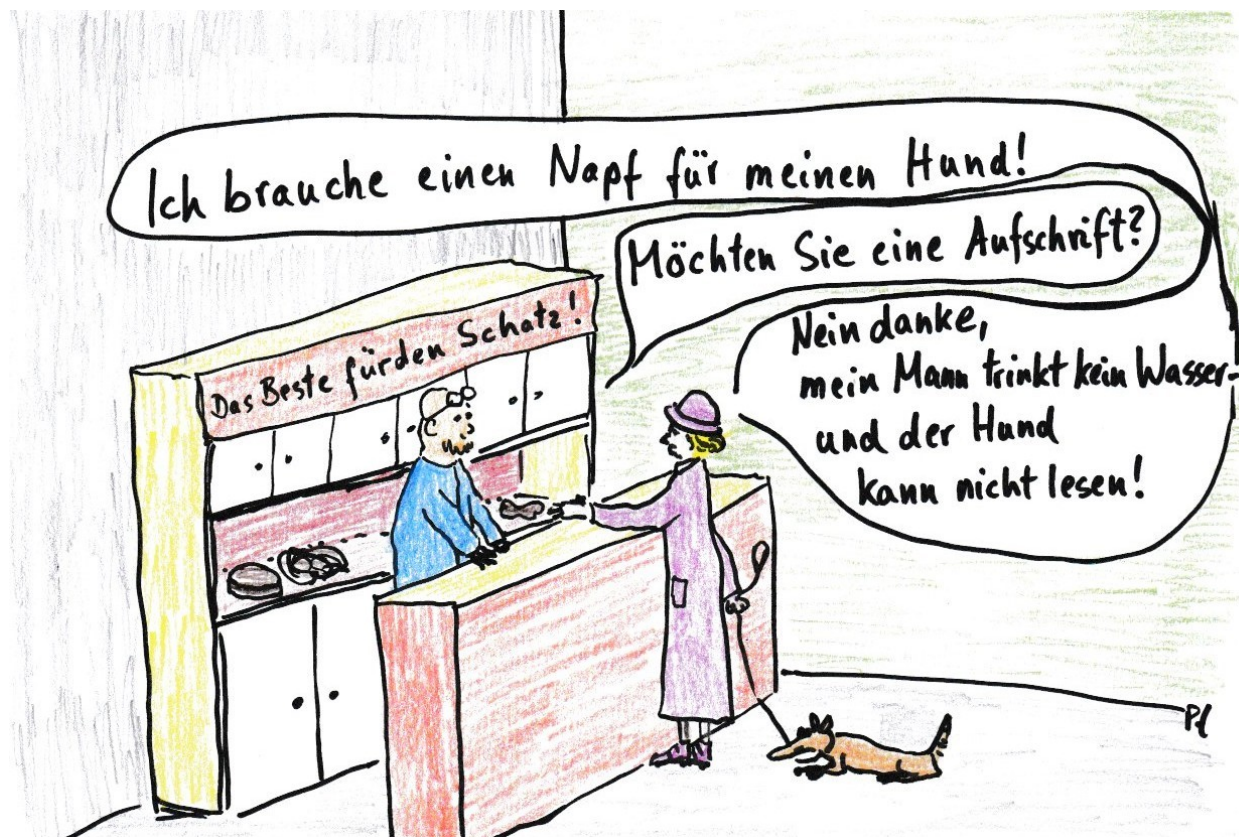 Ich brauche einen Napf für meinen Hund!
Möchten Sie eine Aufschrift?
Nein danke,
mein Mann trinkt kein Wasser-
und der Hund
kann nicht lesen!
Das Beste für den Schatz!